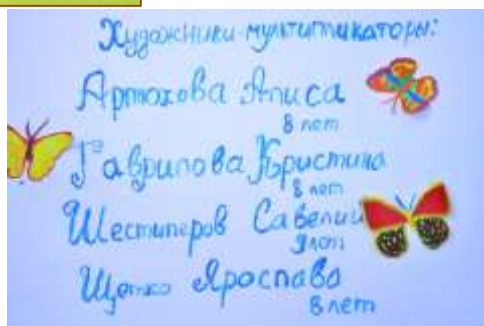 Художники-мультипликаторы:
Артюхова Алиса
8 лет
Гаврилова Кристина
8 лет
Шестипёров Савелий
9 лет
Ярослава
8 лет